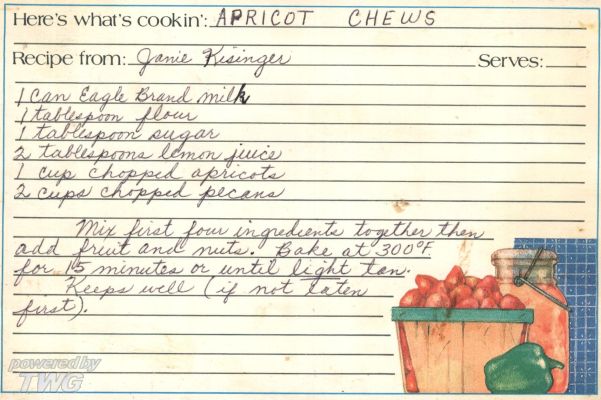 Here's what's cookin': APRICOT CHEWS
Recipe from: Janie Kisinger Serves:
1 can Eagle Brand milk
1 tablespoon flour
1 tablespoon sugar
2 tablespoons lemon juice
1 cup chopped apricots
2 cups chopped pecans
Mix first four ingredients together then
add fruit and nuts. Bake at 300°F.
for 15 minutes or until light tan.
Keeps well (if not eaten
first).
powered by
TWG